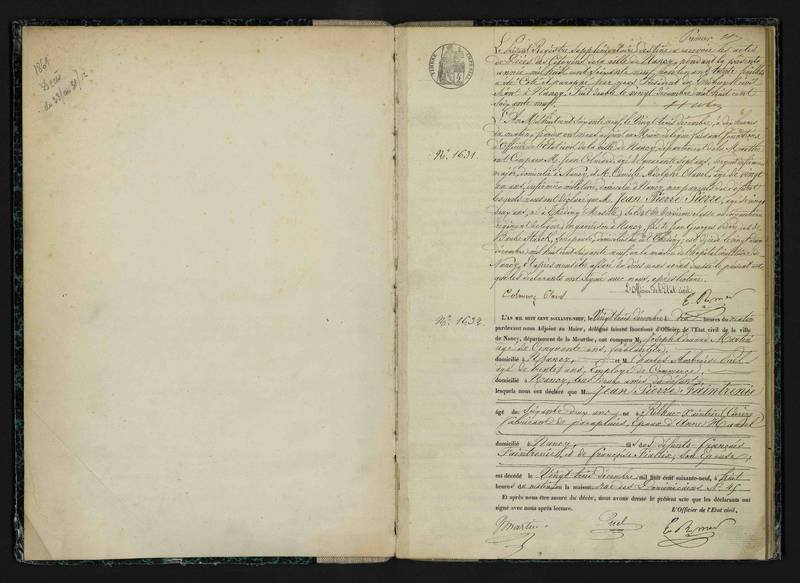 1869
Décès
du 23 au 31 / 12
TIMBRE IMPERIAL
Premier
Le présent Registre supplémentaire destiné à recevoir les actes
de Décès des Citoyens de la ville de Nancy, pendant la présente
année mil huit cent soixante neuf,
été Coté et paraphé par nous Président du Tribunal civil
séant à Nancy. Fait double le vingt Décembre mil huit cent
soixante neuf.
N.º 1631.
L'An mil huit cent soixante neuf, le Vingt trois décembre, à dix heures
du matin, pardevant nous adjoint au Maire délégué faisant fonctions
d'Officier de l'Etat civil de la ville de Nancy, département de la Meurthe
ont comparu M. Jean Colmerg, âgé de quarante sept ans, sergent infirmier
major, domicilié à Nancy, et M. Camille Adolphe Claud, âgé de vingt
un ans, infirmier militaire, domicilié à Nancy, non parents du défunt
lesquels nous ont déclaré que M. Jean Pierre Pierre, âgé de vingt
deux ans, né à (Moselle), soldat de troisième classe au cinquième
régiment de ligne, en garnison à Nancy, fils de Jean Georges Pierre, et de
domiciliés, est décédé le vingt deux
décembre mil huit cent soixante neuf, en la maison de l'hôpital militaire de
Nancy. Et après nous être assuré du décès nous avons dressé le présent acte
que les déclarants ont signé avec nous, après lecture.
L'Officier de l'Etat civil,
N.º 1632.
L'AN MIL HUIT CENT SOIXANTE-NEUF, le Vingt trois décembre à dix heures du matin
pardevant nous Adjoint au Maire, délégué faisant fonctions d'Officier de l'Etat civil de la ville
de Nancy, département de la Meurthe, ont comparu M. Joseph Martin
âgé de Cinquante ans,
domicilié à Nancy, et M. Charles Ambroise
âgé de trente ans, Employé de Commerce,
domicilié à Nancy, tous deux amis du défunt,
lesquels nous ont déclaré que M. Jean Pierre Faintrenie
âgé de Soixante deux ans né à
fabricant de parapluies, Epoux d'Anne
domicilié à Nancy, fils des défunts François
Faintrenie, et de Françoise, son Epouse,
est décédé le Vingt trois décembre mil huit cent soixante-neuf, à huit
heures du matin en la maison rue des Dominicains N.º 45
Et après nous être assuré du décès, nous avons dressé le présent acte que les déclarants ont
signé avec nous après lecture.
L'Officier de l'Etat civil,
Martin